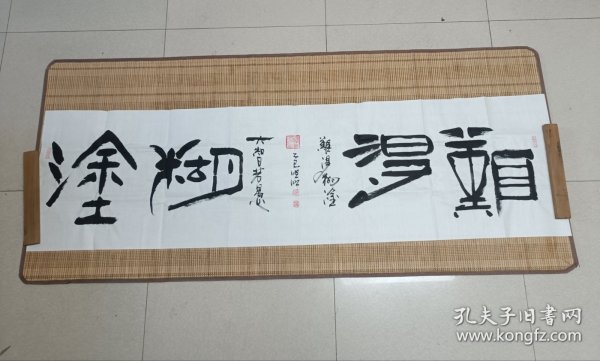 難得糊塗
難得糊塗
大智若愚
乙巳
孔夫子旧书网
www.kongfz.com